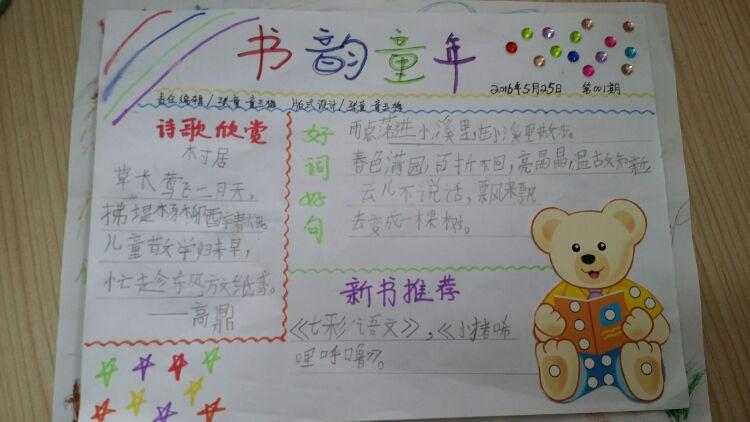 书韵童年
2016年5月25日 第001期
责任编辑/ 版式设计/
诗歌欣赏
村居
草长莺飞二月天,
拂堤杨柳醉春烟。
儿童散学归来早,
忙趁东风放纸鸢。
——高鼎
好词好句
雨点落进小溪里,在小溪里散步。
春色满园,百折不回,亮晶晶,温故知新
云儿不说话,飘来飘
去变成一棵树。
新书推荐
《七彩语文》,《小猪唏
哩呼噜》。